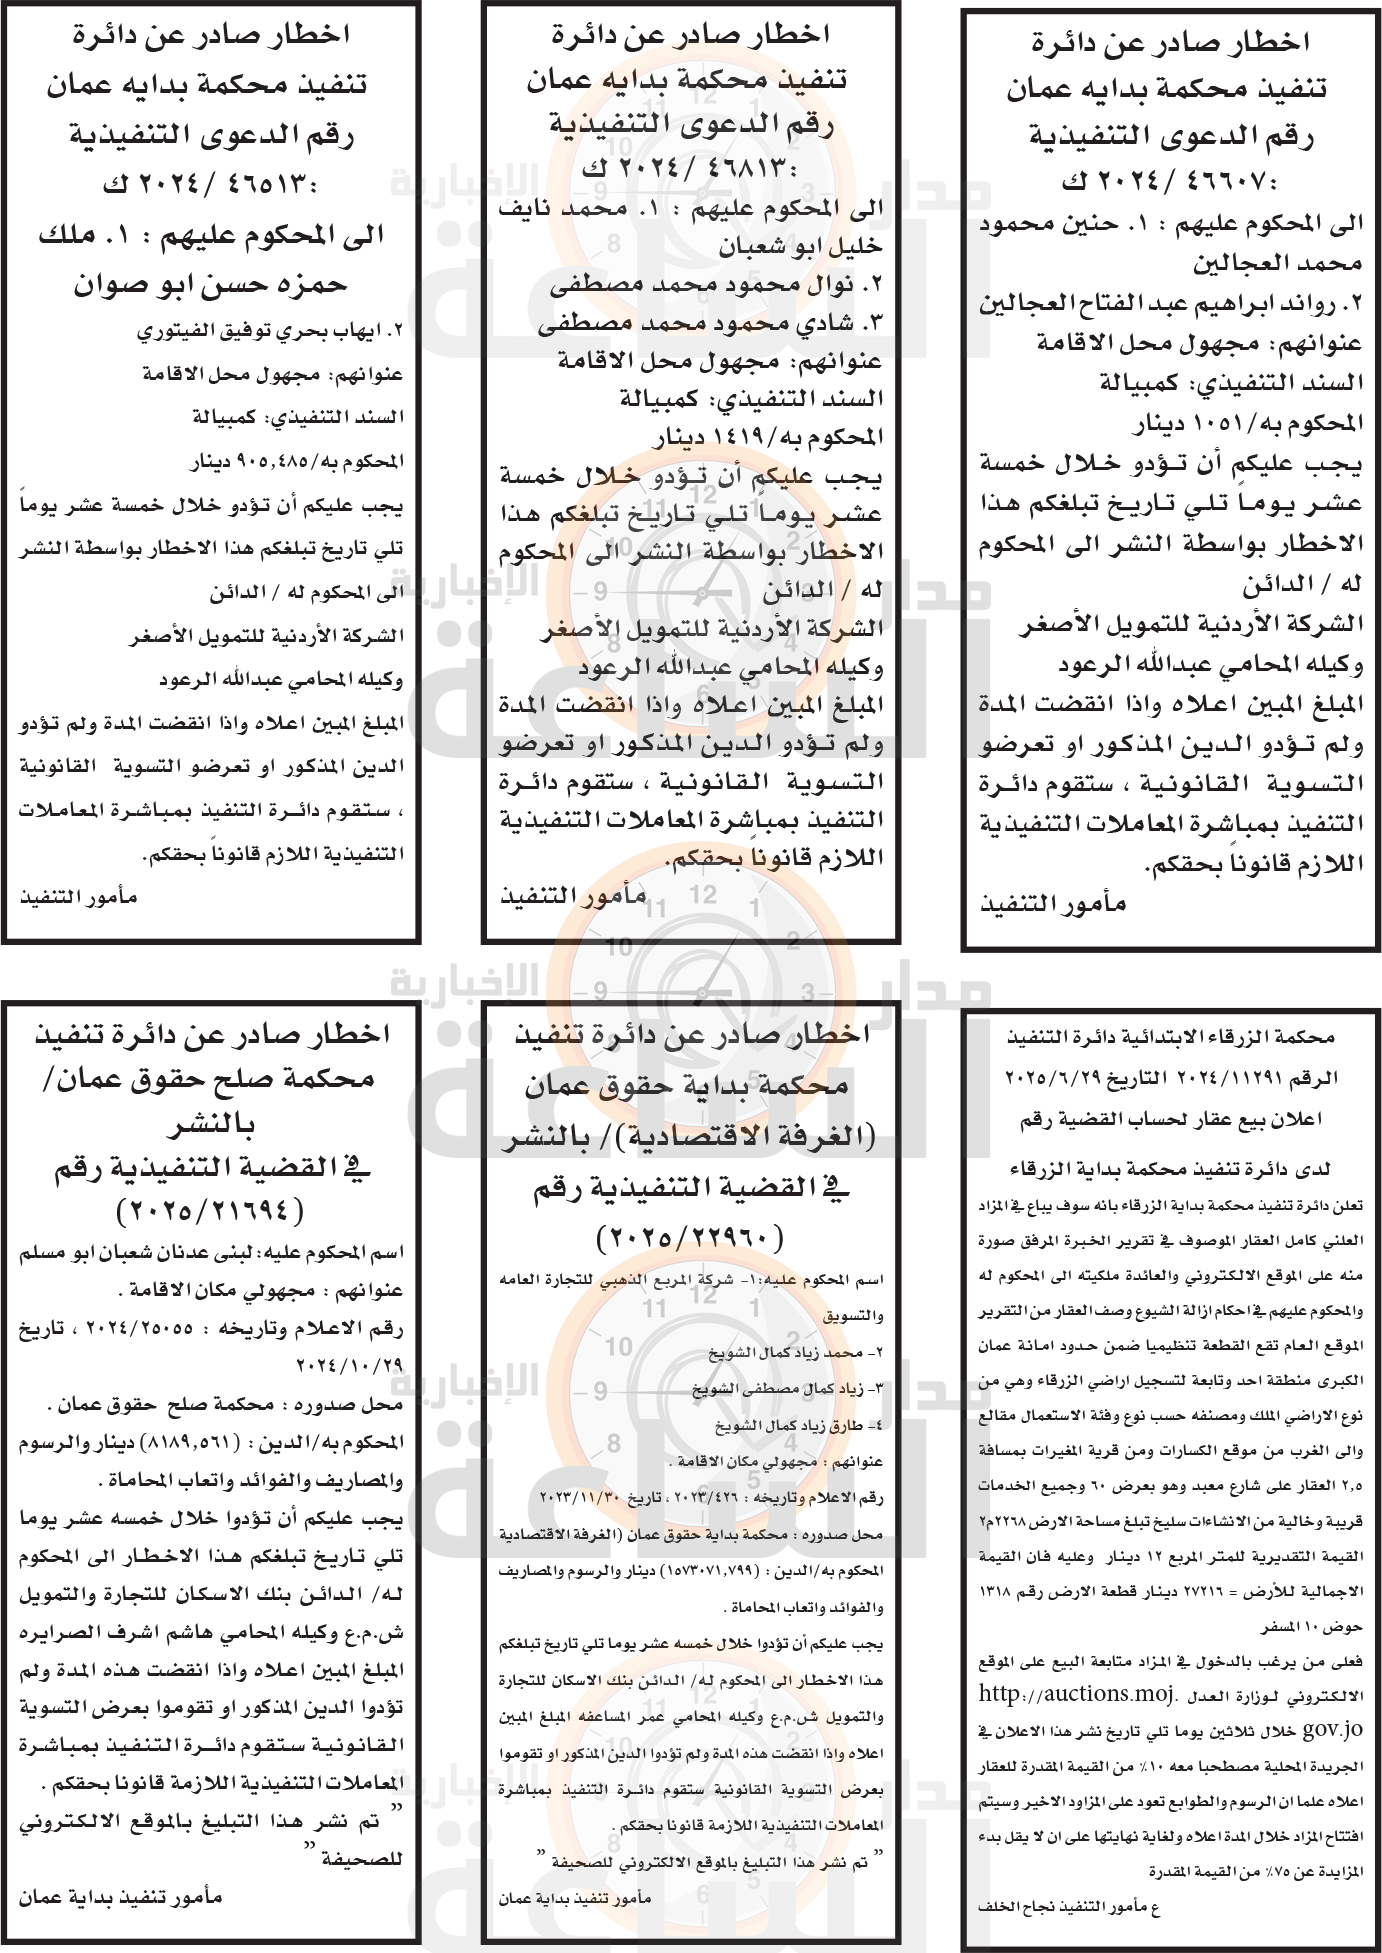 اخطار صادر عن دائرة
تنفيذ محكمة بدايه عمان
رقم الدعوى التنفيذية
:٤٦٦٠٧ /٢٠٢٤ ك
الى المحكوم عليهم : ١. حنين محمود
محمد العجالين
٢. رواند ابراهيم عبد الفتاح العجالين
عنوانهم: مجهول محل الاقامة
السند التنفيذي: كمبيالة
المحكوم به/١٠٥١ دينار
يجب عليكم أن تؤدو خلال خمسة
عشر يوماً تلي تاريخ تبلغكم هذا
الاخطار بواسطة النشر الى المحكوم
له / الدائن
الشركة الأردنية للتمويل الأصغر
وكيله المحامي عبدالله الرعود
المبلغ المبين اعلاه واذا انقضت المدة
ولم تؤدو الدين المذكور او تعرضو
التسوية القانونية ، ستقوم دائرة
التنفيذ بمباشرة المعاملات التنفيذية
اللازم قانوناً بحقكم.
مأمور التنفيذ
اخطار صادر عن دائرة
تنفيذ محكمة بدايه عمان
رقم الدعوى التنفيذية
:٤٦٨١٣ /٢٠٢٤ ك
الى المحكوم عليهم : ١. محمد نايف
خليل ابو شعبان
٢. نوال محمود محمد مصطفى
٣. شادي محمود محمد مصطفى
عنوانهم: مجهول محل الاقامة
السند التنفيذي: كمبيالة
المحكوم به/١٤١٩ دينار
يجب عليكم أن تؤدو خلال خمسة
عشر يوماً تلي تاريخ تبلغكم هذا
الاخطار بواسطة النشر الى المحكوم
له / الدائن
الشركة الأردنية للتمويل الأصغر
وكيله المحامي عبدالله الرعود
المبلغ المبين اعلاه واذا انقضت المدة
ولم تؤدو الدين المذكور او تعرضو
التسوية القانونية ، ستقوم دائرة
التنفيذ بمباشرة المعاملات التنفيذية
اللازم قانوناً بحقكم.
مأمور التنفيذ
اخطار صادر عن دائرة
تنفيذ محكمة بدايه عمان
رقم الدعوى التنفيذية
:٤٦٥١٣ /٢٠٢٤ ك
الى المحكوم عليهم : ١. ملك
حمزه حسن ابو صوان
٢. ايهاب بحري توفيق الفيتوري
عنوانهم: مجهول محل الاقامة
السند التنفيذي: كمبيالة
المحكوم به/٩٠٥,٤٨٥ دينار
يجب عليكم أن تؤدو خلال خمسة عشر يوماً
تلي تاريخ تبلغكم هذا الاخطار بواسطة النشر
الى المحكوم له / الدائن
الشركة الأردنية للتمويل الأصغر
وكيله المحامي عبدالله الرعود
المبلغ المبين اعلاه واذا انقضت المدة ولم تؤدو
الدين المذكور او تعرضو التسوية القانونية
، ستقوم دائرة التنفيذ بمباشرة المعاملات
التنفيذية اللازم قانوناً بحقكم.
مأمور التنفيذ
محكمة الزرقاء الابتدائية دائرة التنفيذ
الرقم ٢٠٢٤/١١٢٩١ التاريخ ٢٠٢٥/٦/٢٩
اعلان بيع عقار لحساب القضية رقم
لدى دائرة تنفيذ محكمة بداية الزرقاء
تعلن دائرة تنفيذ محكمة بداية الزرقاء بانه سوف يباع في المزاد
العلني كامل العقار الموصوف في تقرير الخبرة المرفق صورة
منه على الموقع الالكتروني والعائدة ملكيته الى المحكوم له
والمحكوم عليهم في احكام ازالة الشيوع وصف العقار من التقرير
الموقع العام تقع القطعة تنظيميا ضمن حدود امانة عمان
الكبرى منطقة احد وتابعة لتسجيل اراضي الزرقاء وهي من
نوع الاراضي الملك ومصنفه حسب نوع وفئة الاستعمال مقالع
والى الغرب من موقع الكسارات ومن قرية المغيرات بمسافة
٢,٥ العقار على شارع معبد وهو بعرض ٦٠ وجميع الخدمات
قريبة وخالية من الانشاءات سليخ تبلغ مساحة الارض ٢٢٦٨م٢
القيمة التقديرية للمتر المربع ١٢ دينار وعليه فان القيمة
الاجمالية للأرض = ٢٧٢١٦ دينار قطعة الارض رقم ١٣١٨
حوض ١٠ المسفر
فعلى من يرغب بالدخول في المزاد متابعة البيع على الموقع
الالكتروني لوزارة العدل http://auctions.moj.
gov.jo خلال ثلاثين يوما تلي تاريخ نشر هذا الاعلان في
الجريدة المحلية مصطحبا معه ١٠٪ من القيمة المقدرة للعقار
اعلاه علما ان الرسوم والطوابع تعود على المزاود الاخير وسيتم
افتتاح المزاد خلال المدة اعلاه ولغاية نهايتها على ان لا يقل بدء
المزايدة عن ٧٥٪ من القيمة المقدرة
ع مأمور التنفيذ نجاح الخلف
اخطار صادر عن دائرة تنفيذ
محكمة بداية حقوق عمان
(الغرفة الاقتصادية)/ بالنشر
في القضية التنفيذية رقم
(٢٠٢٥/٢٢٩٦٠)
اسم المحكوم عليه:١- شركة المربع الذهبي للتجارة العامه
والتسويق
٢- محمد زياد كمال الشويخ
٣- زياد كمال مصطفى الشويخ
٤- طارق زياد كمال الشويخ
عنوانهم : مجهولي مكان الاقامة .
رقم الاعلام وتاريخه : ٢٠٢٣/٤٢٦ ، تاريخ ٢٠٢٣/١١/٣٠
محل صدوره : محكمة بداية حقوق عمان (الغرفة الاقتصادية
المحكوم به/الدين : (١٥٧٣٠٧١,٧٩٩) دينار والرسوم والمصاريف
والفوائد واتعاب المحاماة .
يجب عليكم أن تؤدوا خلال خمسه عشر يوما تلي تاريخ تبلغكم
هذا الاخطار الى المحكوم له/ الدائن بنك الاسكان للتجارة
والتمويل ش.م.ع وكيله المحامي عمر المساعفه المبلغ المبين
اعلاه واذا انقضت هذه المدة ولم تؤدوا الدين المذكور او تقوموا
بعرض التسوية القانونية ستقوم دائرة التنفيذ بمباشرة
المعاملات التنفيذية اللازمة قانونا بحقكم .
” تم نشر هذا التبليغ بالموقع الالكتروني للصحيفة ”
مأمور تنفيذ بداية عمان
اخطار صادر عن دائرة تنفيذ
محكمة صلح حقوق عمان/
بالنشر
في القضية التنفيذية رقم
(٢٠٢٥/٢١٦٩٤)
اسم المحكوم عليه: لبنى عدنان شعبان ابو مسلم
عنوانهم : مجهولي مكان الاقامة .
رقم الاعلام وتاريخه : ٢٠٢٤/٢٥٠٥٥ ، تاريخ
٢٠٢٤/١٠/٢٩
محل صدوره : محكمة صلح حقوق عمان .
المحكوم به/الدين : (٨١٨٩,٥٦١) دينار والرسوم
والمصاريف والفوائد واتعاب المحاماة .
يجب عليكم أن تؤدوا خلال خمسه عشر يوما
تلي تاريخ تبلغكم هذا الاخطار الى المحكوم
له/ الدائن بنك الاسكان للتجارة والتمويل
ش.م.ع وكيله المحامي هاشم اشرف الصرايره
المبلغ المبين اعلاه واذا انقضت هذه المدة ولم
تؤدوا الدين المذكور او تقوموا بعرض التسوية
القانونية ستقوم دائرة التنفيذ بمباشرة
المعاملات التنفيذية اللازمة قانونا بحقكم .
” تم نشر هذا التبليغ بالموقع الالكتروني
للصحيفة ”
مأمور تنفيذ بداية عمان
مدار
الساعة
الإخبارية